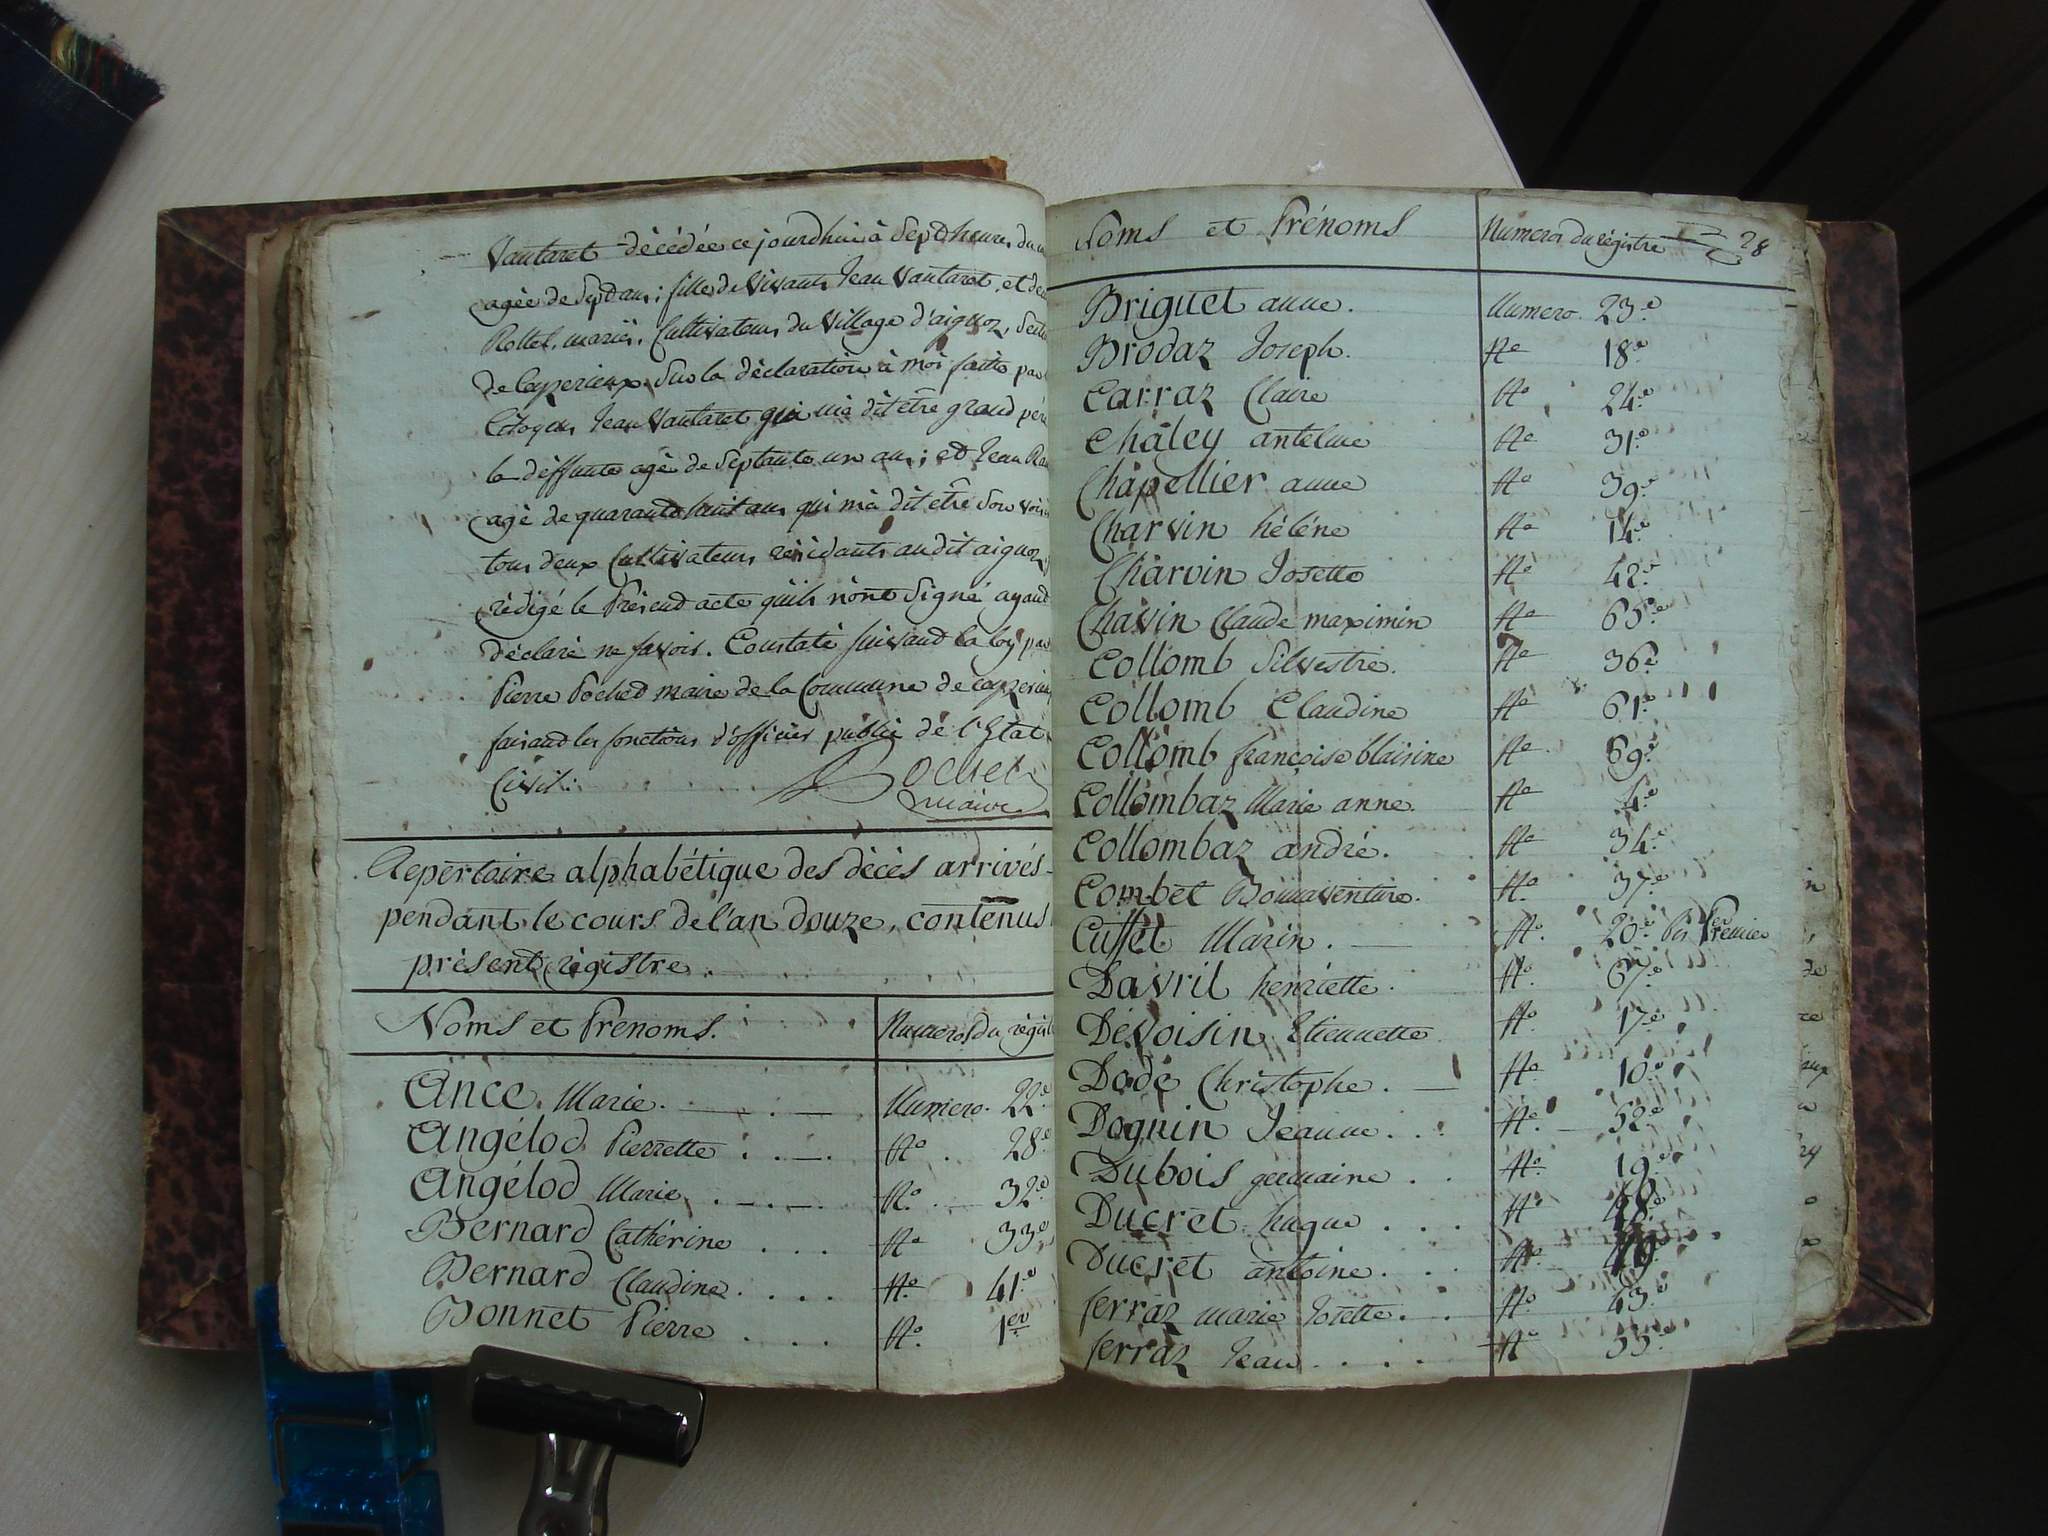 Vautaret décédée ce jourdhui à Sept heures du
agée de Sept ans; fille de Vivants Jean Vautaret, et de
Rollet, mariés, Cultivateurs du Village d'aignoz,
de Ceyzerieux. Sur la déclaration à moi faitte par
Citoyen Jean Vautaret qui m'a dit être grand père
la deffunte agé de Septante un ans; et Jean
agé de quarante huit ans qui m'a dit être Son voisin
tous deux Cultivateurs résidants audit aignoz,
rédigé le Présent acte qu'ils n'ont Signé ayant
déclaré ne savoir. Constaté suivant la loy par
Pierre Pochet maire de la Commune de Ceyzerieux
faisant les fonctions d'officier public de l'Etat
Civil:
Pochet
maire
Repertoire alphabétique des décès arrivés
pendant le cours de l'an douze, contenus
présent régistre.
Noms et Prenoms. Numeros du régist
Ance Marie. Numero. 22.e
Angélod Pierrette No. 28.e
Angélod Marie No. 32.e
Bernard Cathérine No 33.e
Bernard Claudine No. 41.e
Bonnet Pierre No. 1er
Noms et Prénoms Numeros du régistre 28
Briguet anne. Numero. 23.e
Brodaz Joseph. No 18.e
Carraz Claire No 24.e
Chaley antelme No 31.e
Chapellier anne No 39.e
Charvin héléne No 14.e
Charvin Josette No 42.e
Chavin Claude maximin No 65.e
Collomb Silvestre. No 36.e
Collomb Claudine No 61.e
Collomb françoise blaisine No 69.e
Collombaz Marie anne. No 4.e
Collombaz andré. No 34.e
Combet Bonnaventure. No. 37.e
Cuffet Marin. No. 20.e bis Premier
Davril henriette. No. 67.e
Dévoisin Etiennette No. 17.e
Dodé Christophe. No. 10.e
Dognin Jeanne No. 52.e
Dubois germaine No. 19.e
Ducret hugue No. 48.e
Ducret antoine No. 49.e
ferraz marie Josette No. 43.e
ferraz Jean No 53.e